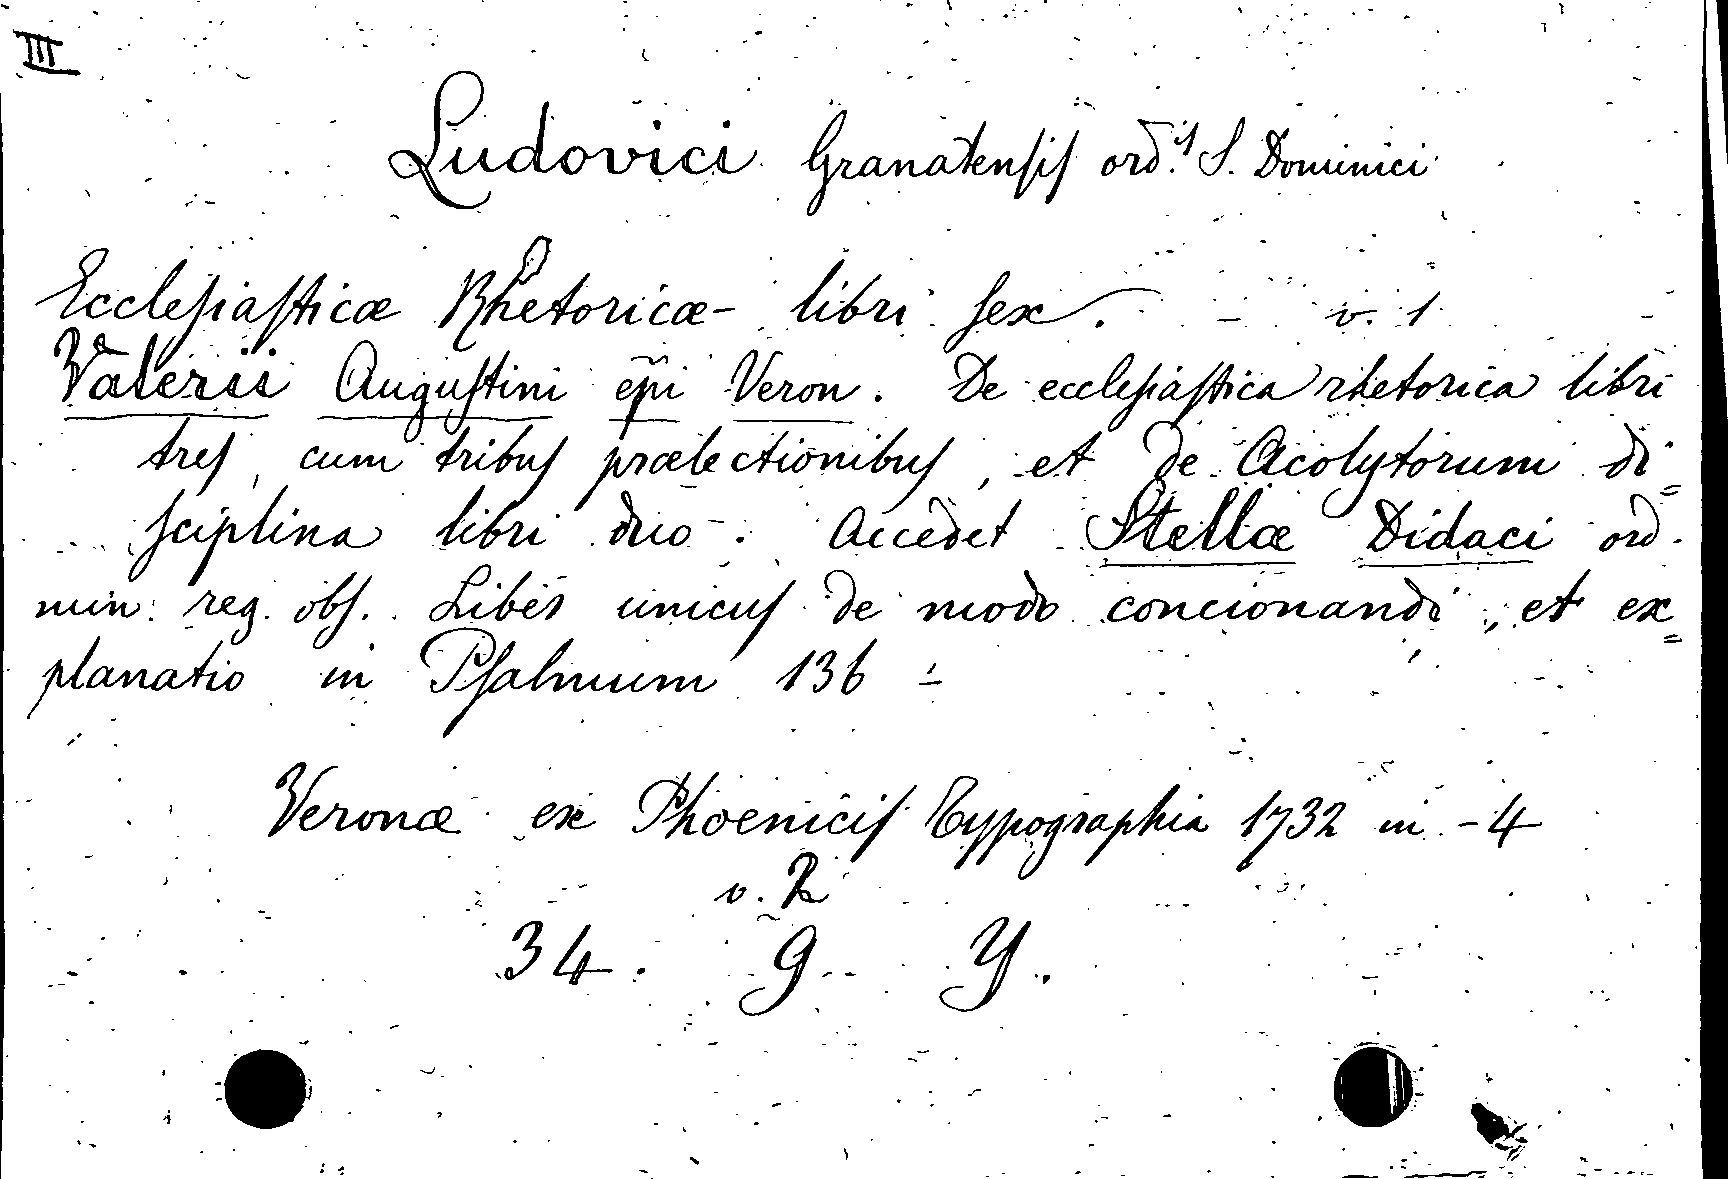 III
Ludovici Granatensis ord.s S. Dominici
Ecclesiasticæ Rhetoricæ - libri sex. - v. 1
Valerii Augustini epi Veron. De ecclesiastica rhetorica libri
tres, cum tribus prælectionibus, et de Acolytorum di=
sciplina libri duo. Accedet Stellæ Didaci ord.
min. reg. obs. Liber unicus de modo concionandi, et ex=
planatio in Psalmum 136 -
Veronæ ex Phoenicis Typographia 1732 in - 4
v. 2
34. g Y.